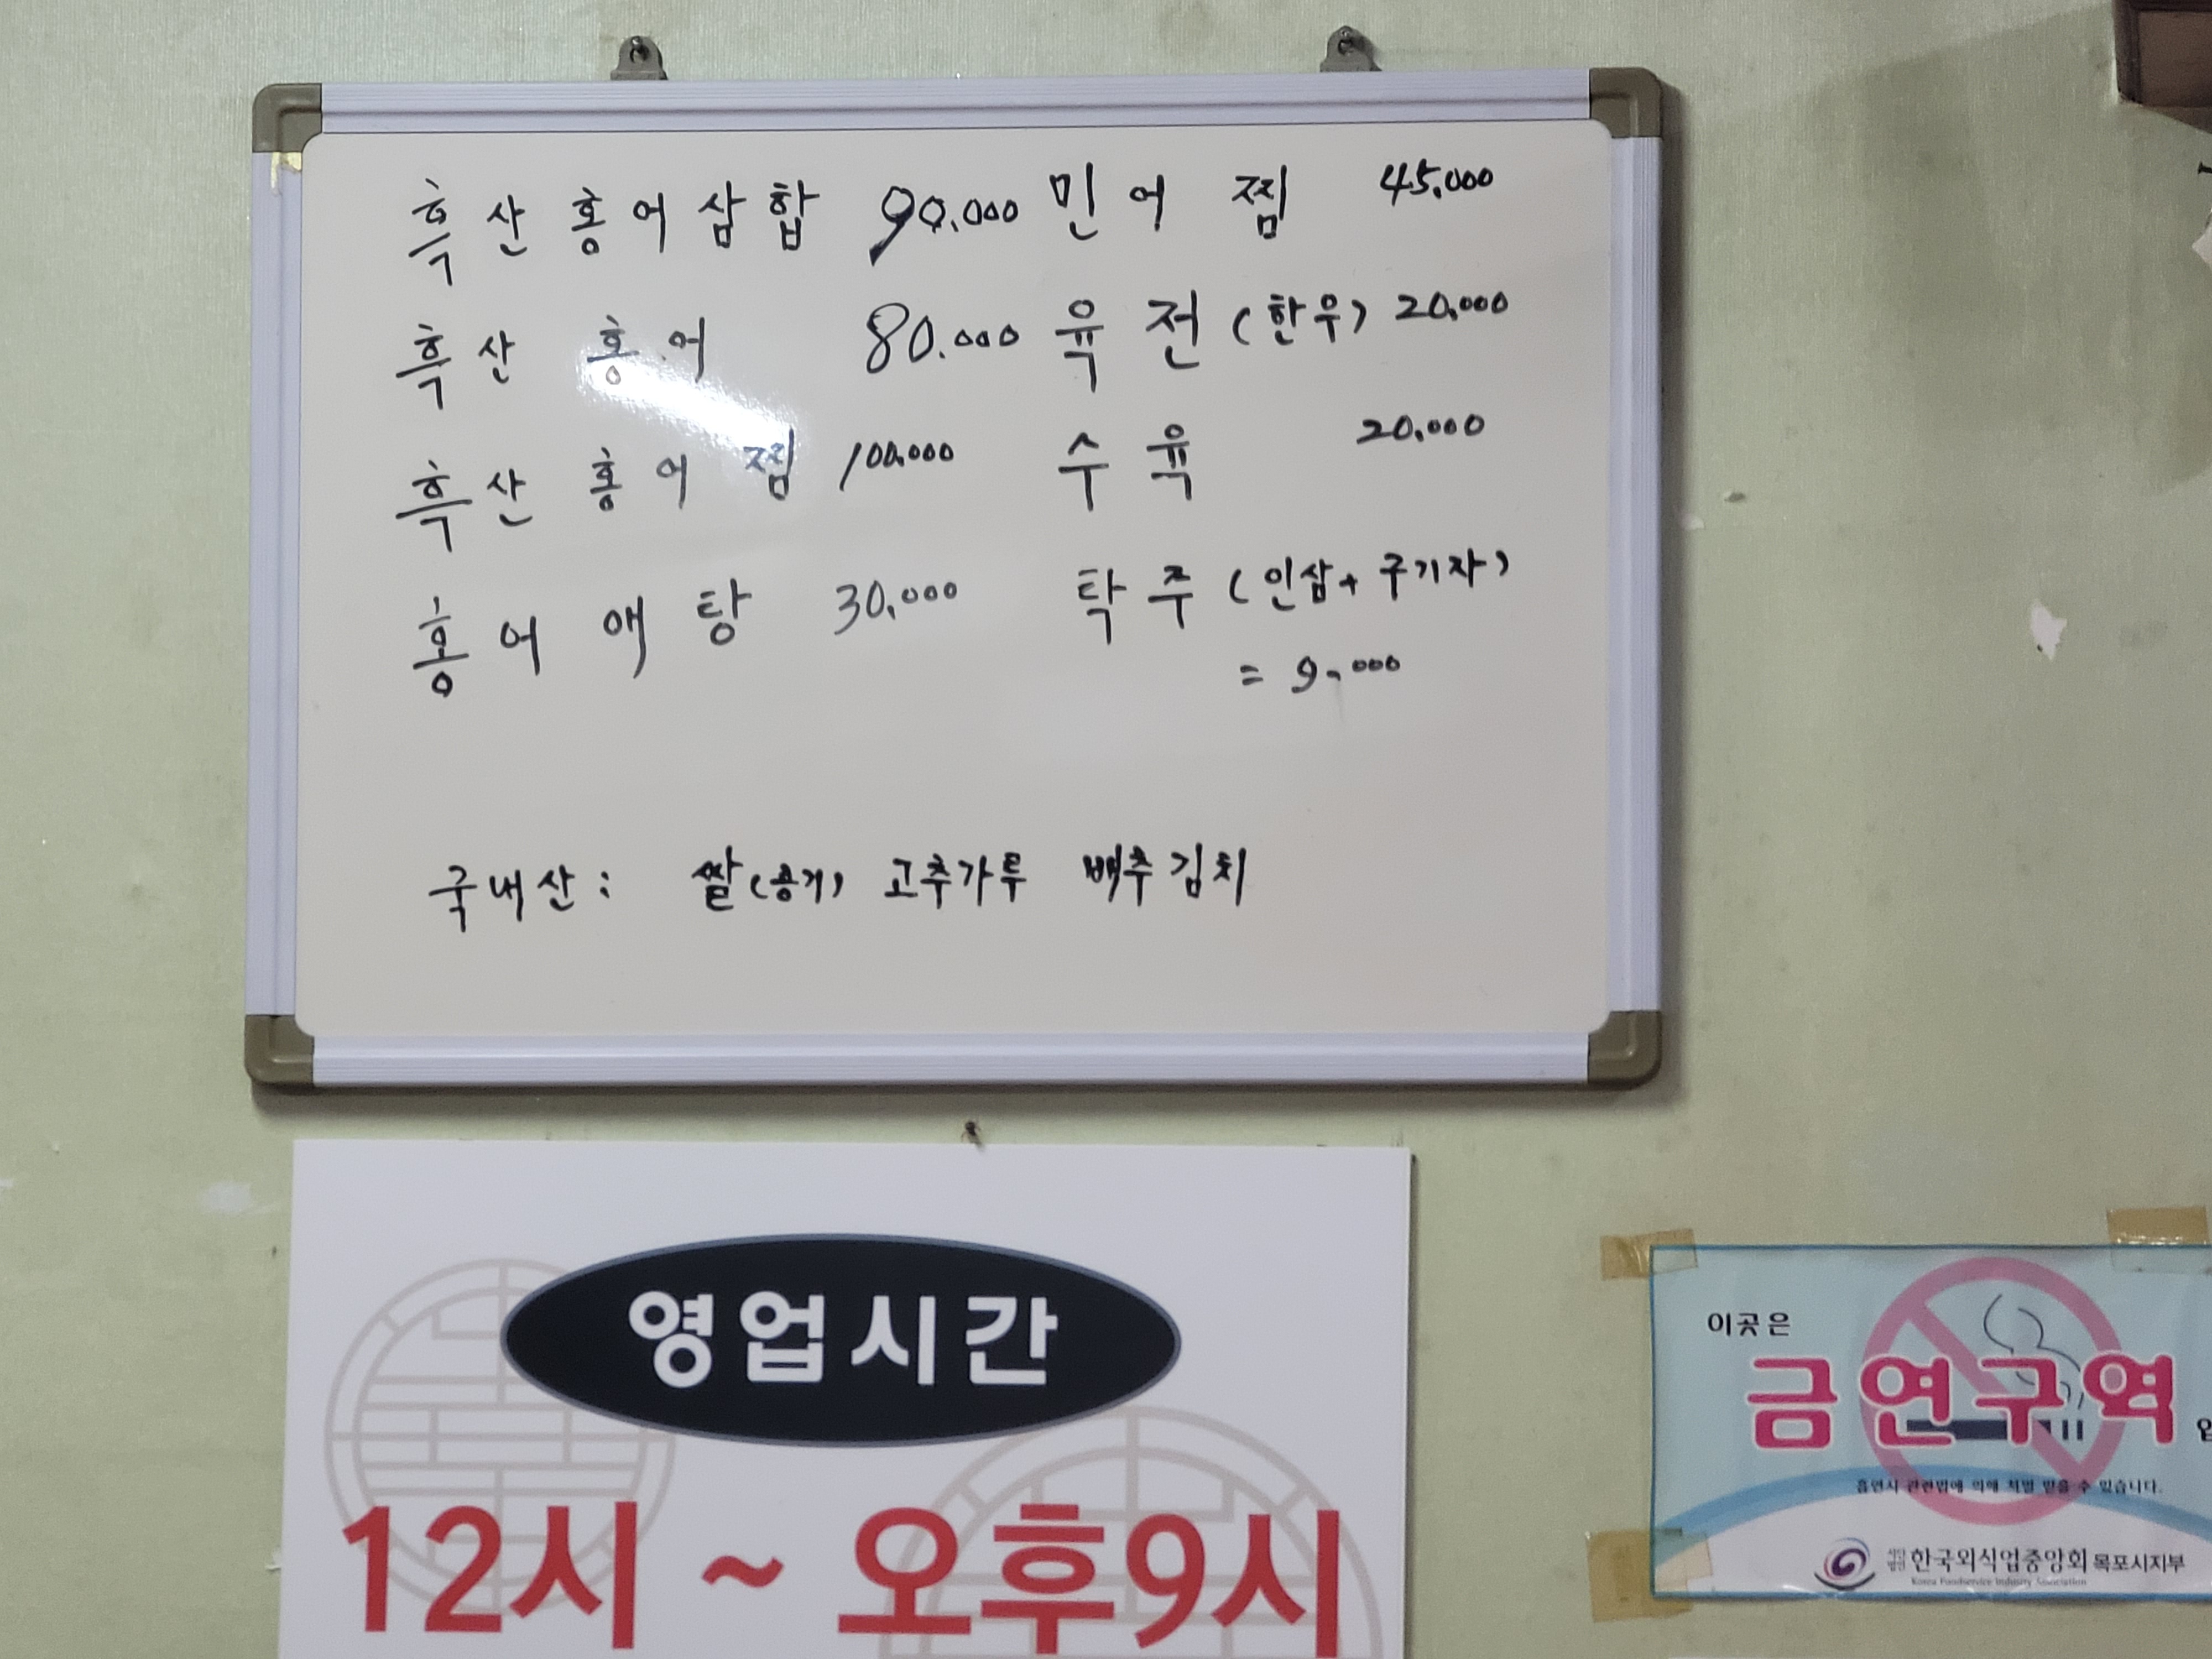 흑산홍어삼합 90.000 민어찜 45.000
흑산 홍어 80.000 육전(한우) 20.000
흑산 홍어찜 100.000 수육 20.000
홍어애탕 30.000 탁주(인삼+구기자)
= 9.000
국내산: 쌀(공기) 고추가루 배추김치
영업시간
12시 ~ 오후9시
이곳은
금연구역
흡연시 관련법에 의해 처벌 받을 수 있습니다.
한국외식업중앙회 목포시지부
Korea Foodservice Industry Association